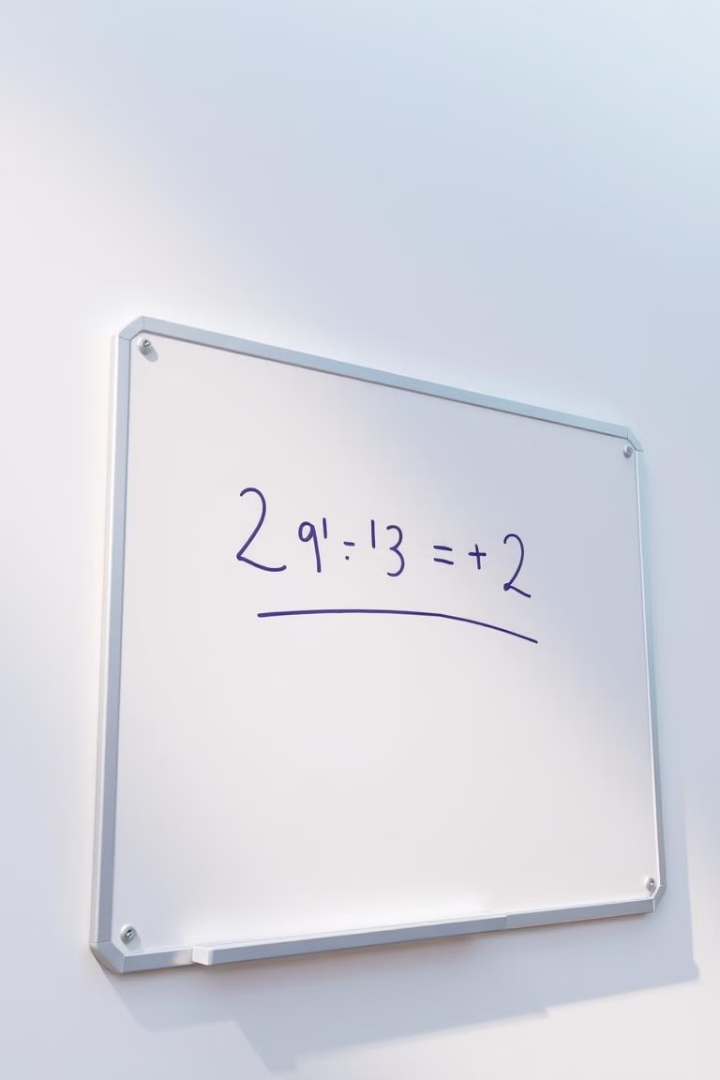 2 9' ÷ '3 = + 2